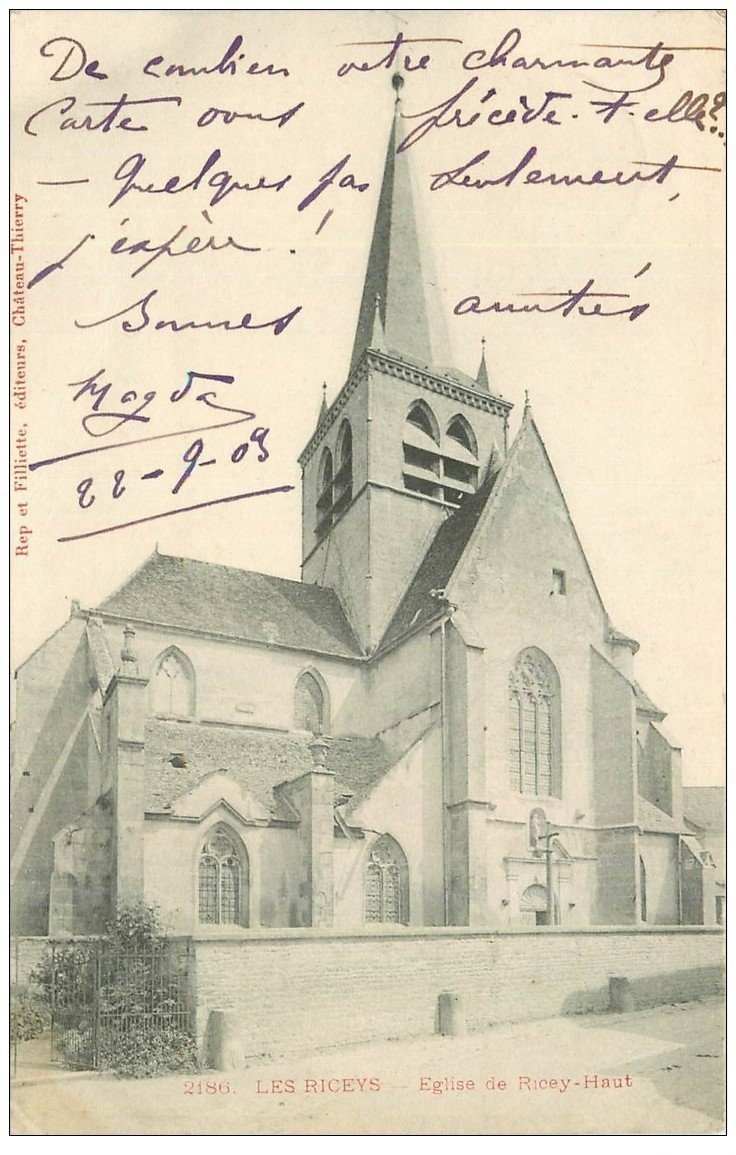 De combien votre charmante
Carte vous précède-t-elle?...
— Quelques pas seulement,
j'espère !
Bonnes amitiés
Magda
22-9-03
Rep et Filliette, éditeurs, Château-Thierry
2186. LES RICEYS — Eglise de Ricey-Haut